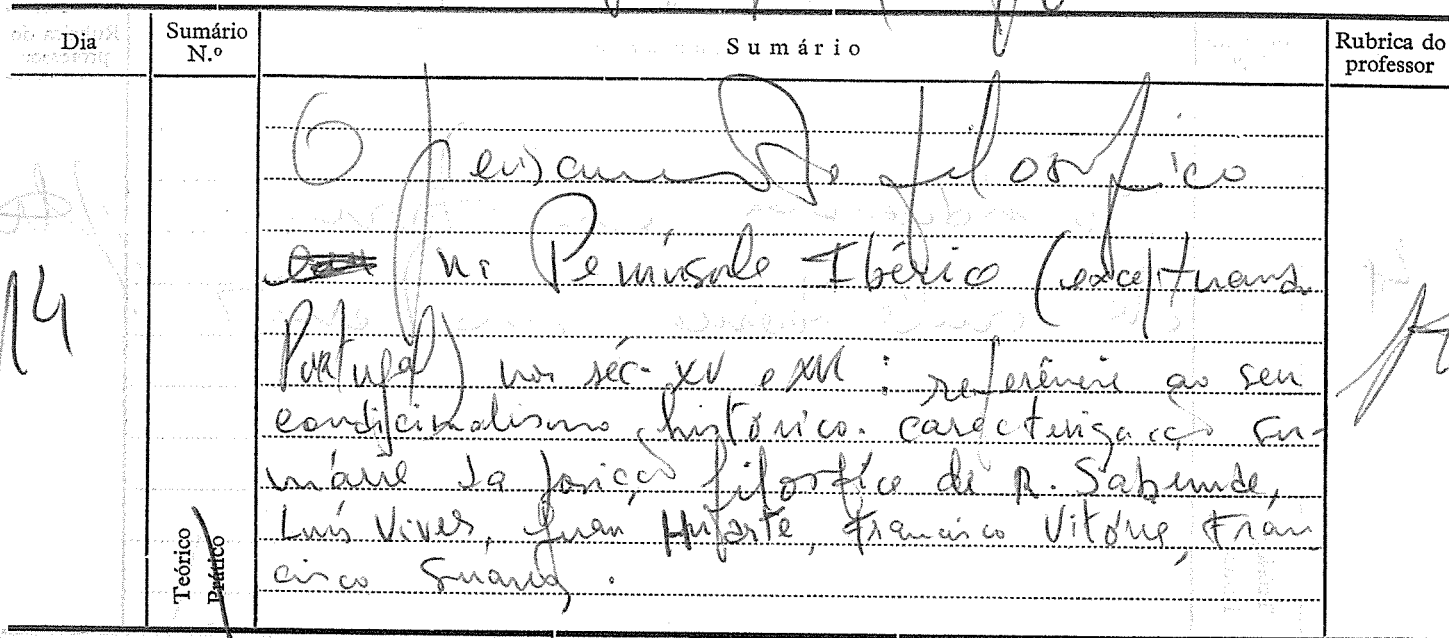 Dia Sumário N.º Sumário Rubrica do professor
O pensamento filosófico
na Península Ibérica (exceptuando
14
Portugal) nos séc. XV e XVI : referência ao seu
condicionalismo histórico. Caracterização su-
mária da posição filosófica de R. Sabunde,
Luís Vives, Juan Huarte, Francisco Vitória, Fran
cisco Suarez.
Teórico
Prático